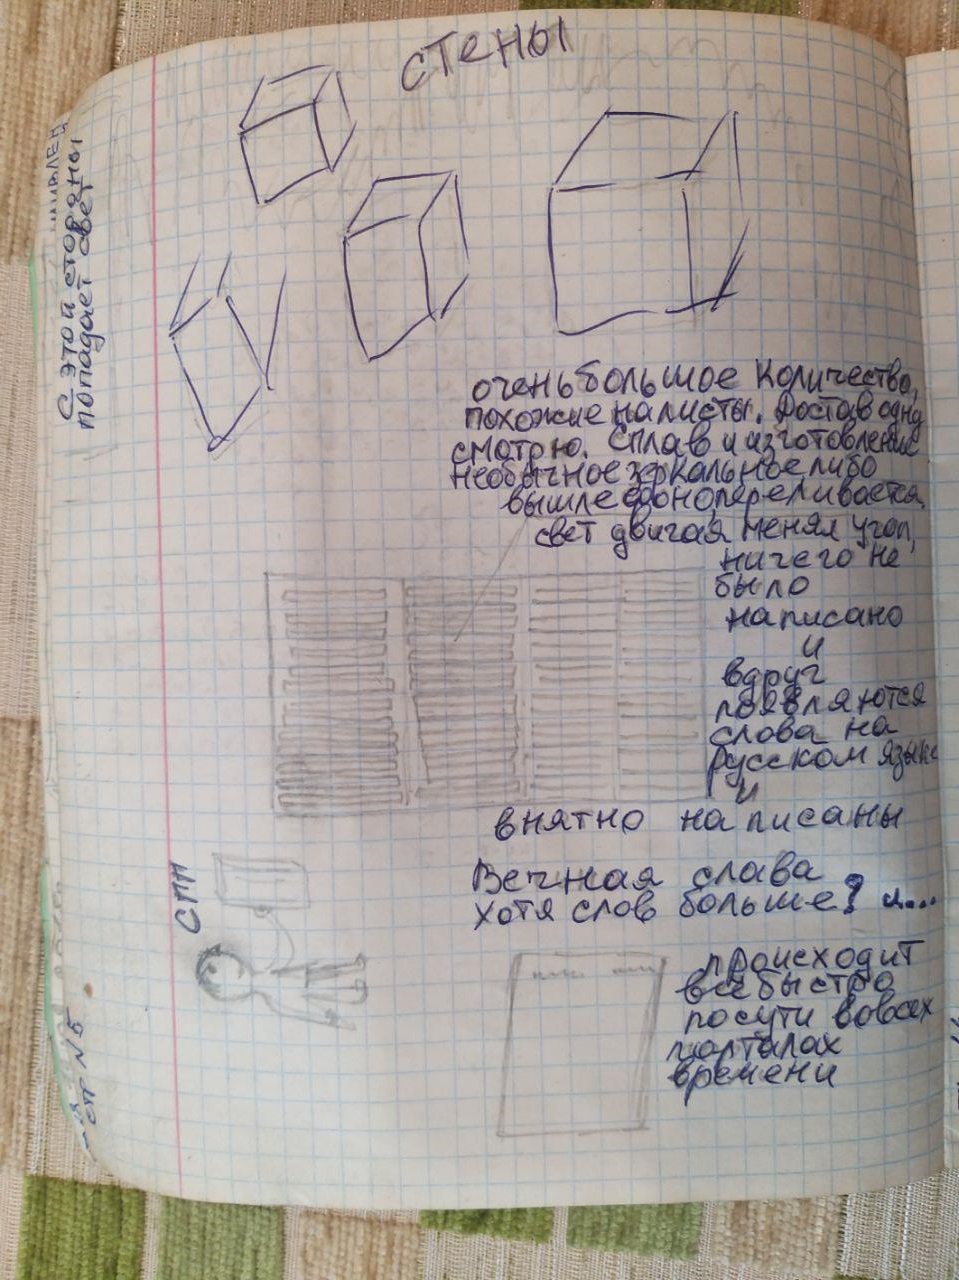 СТЕНЫ
С этой стороны
попадает свет
очень большое количество,
похожие на листы. Достав одну
смотрю. Сплав и изготовление
необычное зеркальное либо
переливается,
свет двигая менял угол,
ничего не
было
написано
и
вдруг
появляются
слова на
русском языке
и
внятно написаны
Вечная слава
хотя слов больше? и....
СПП
происходит
всё быстро
посути вовсех
порталах
времени
стр №5